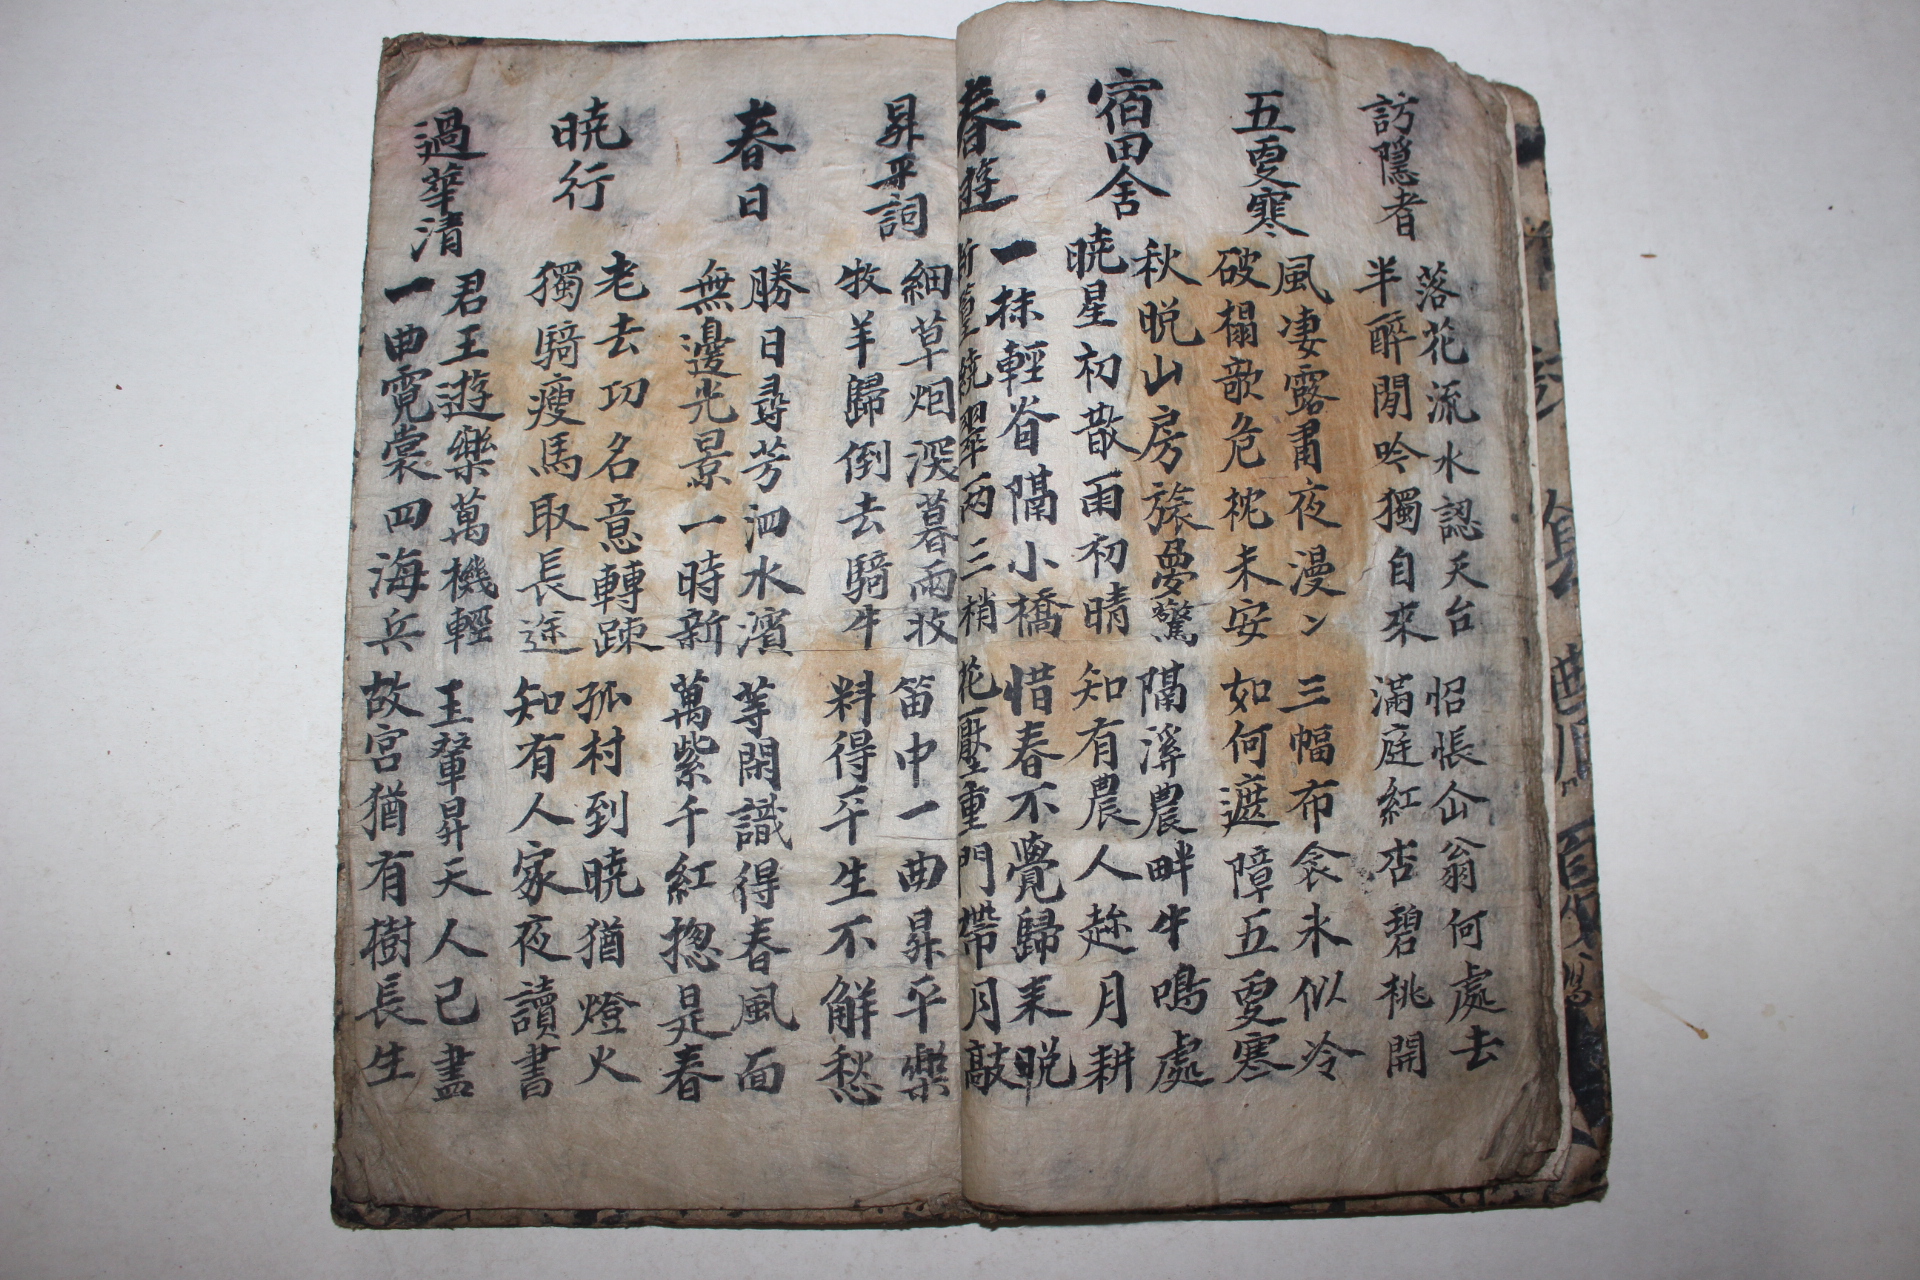 訪隱者
落花流水認天台 怊悵仚翁何處去
半醉閒吟獨自來 滿庭紅杏碧桃開
五更寒
風凄露肅夜漫ン 三幅布衾氷似冷
破榻欹危枕未安 如何遮障五更寒
宿田舍
秋晩山房旅夢驚 隔溪農畔牛鳴處
曉星初散雨初晴 知有農人趂月耕
春遊
一抹輕眉隔小橋 惜春不覺歸来晩
新篁繞翠兩三梢 花壓重門帶月敲
昇平詞
細草烟深暮雨收 笛中一曲昇平樂
牧羊歸倒去騎牛 料得平生不解愁
春日
勝日尋芳泗水濱 等閑識得春風面
無邊光景一時新 萬紫千紅揔是春
曉行
老去功名意轉踈 孤村到曉猶燈火
獨騎瘦馬取長途 知有人家夜讀書
過華清
君王遊樂萬機輕 玉輦昇天人已盡
一曲霓裳四海兵 故宮猶有樹長生